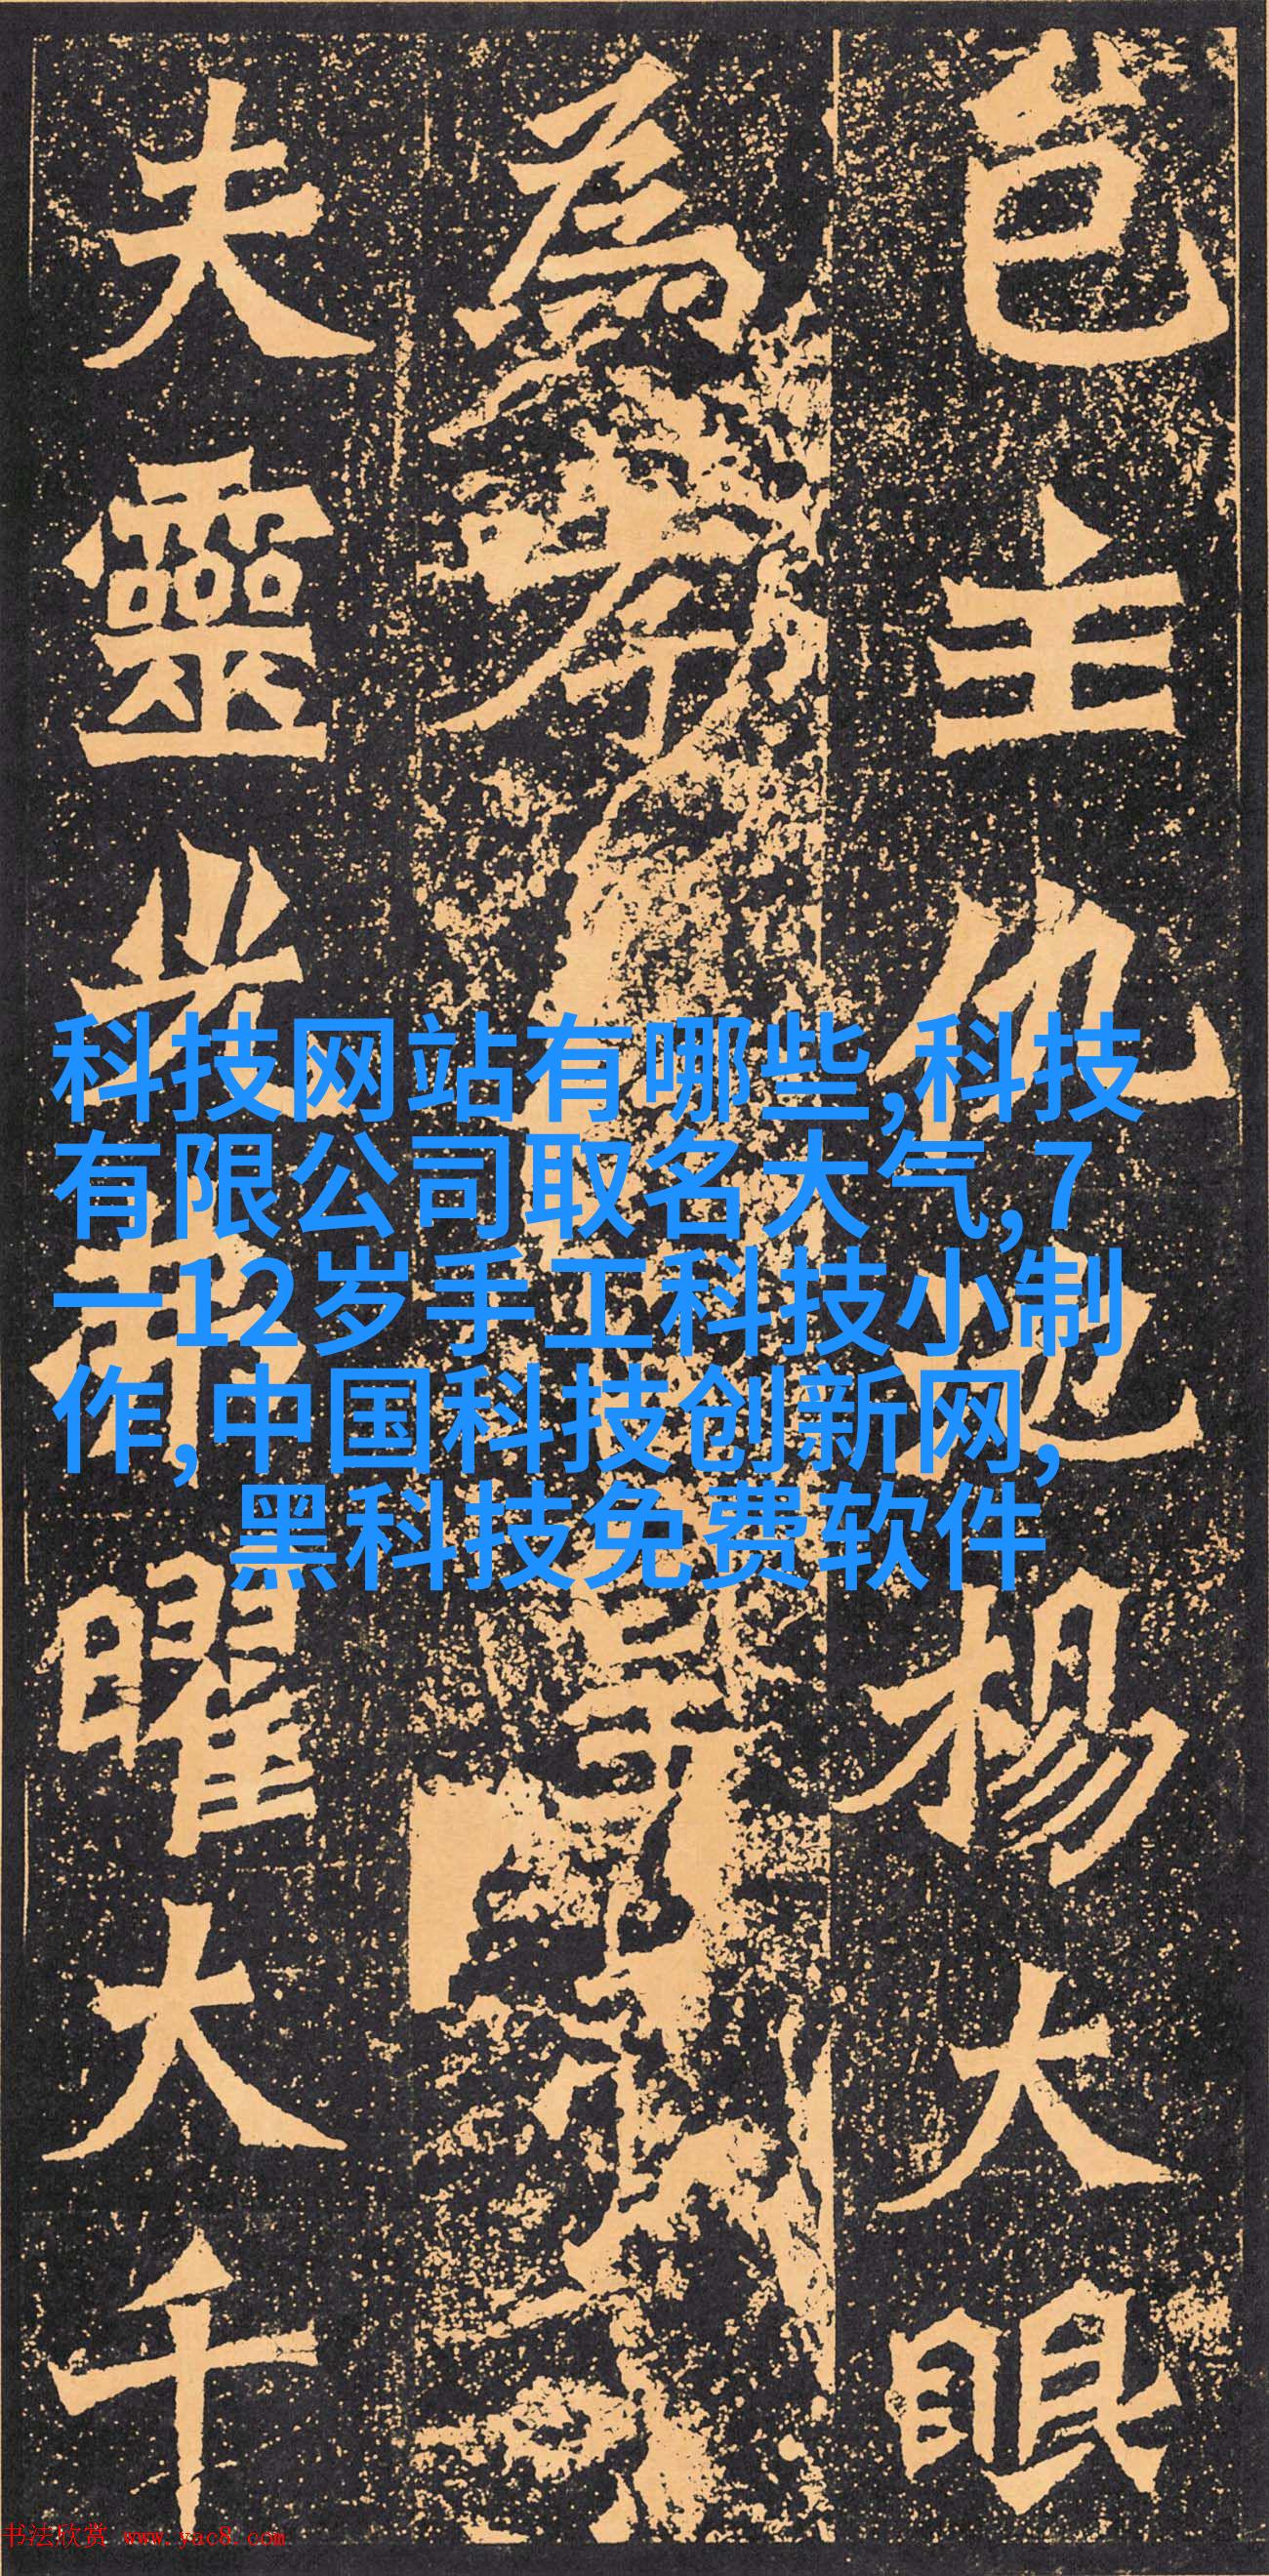 邑主仇池楊大眼
為孝
夫靈光弗曜大千
科技网站有哪些,科技
有限公司取名大气,7
一12岁手工科技小制
作,中国科技创新网,
黑科技免费软件
书法欣赏 www.yac8.com